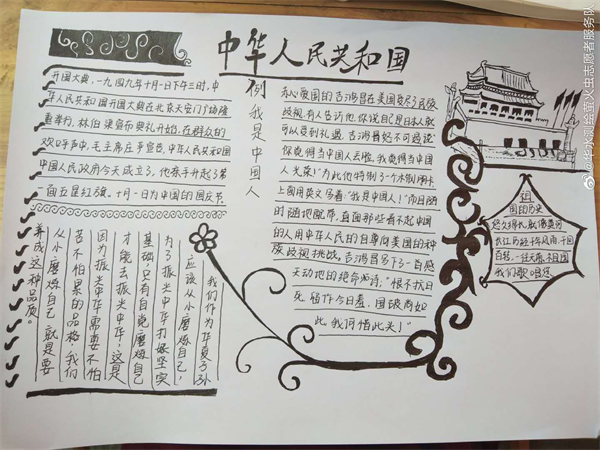 中华人民共和国
开国大典,一九四九年十月一日下午三时,中
华人民共和国开国大典在北京天安门广场隆
重举行,林伯渠宣布典礼开始,在群众的
欢呼声中,毛主席庄严宣告,中华人民共和国
中国人民政府今天成立了,他亲手升起了第
一面五星红旗。十月一日为中国的国庆节
例
我是中国人
赤心爱国的吉鸿昌在美国受尽了民族
歧视,有人告诉他,你说自己是日本人就
可以受到礼遇。吉鸿昌怒不可遏说
你觉得当中国人丢脸,我觉得当中国
人光荣!"为此他特制了一个木制胸卡
上面用英文写着:"我是中国人!"而且随
时随地佩带,直面那些看不起中国
的人用中华人民的自尊向美国的种族
歧视挑战。吉鸿昌写下了一首感
天动地的绝命而诗,"恨不抗日
死,留作今日羞,国破尚如
此,我何惜此头!"
祖
国的历史
悠久绵长,就像黄河
长江历经千年风雨,千回
百转,一往无前,祖国
我们歌唱您
我们作为华夏子孙
应该从小磨炼自己,
为了振兴中华打好坚实
基础,只有自觉磨炼自己
才能去振兴中华!这是
因为振兴中华需要不怕
苦不怕累的品格!我们
从小磨炼自己 就是要
养成这种品质。
@华水测绘萤火虫志愿者服务队